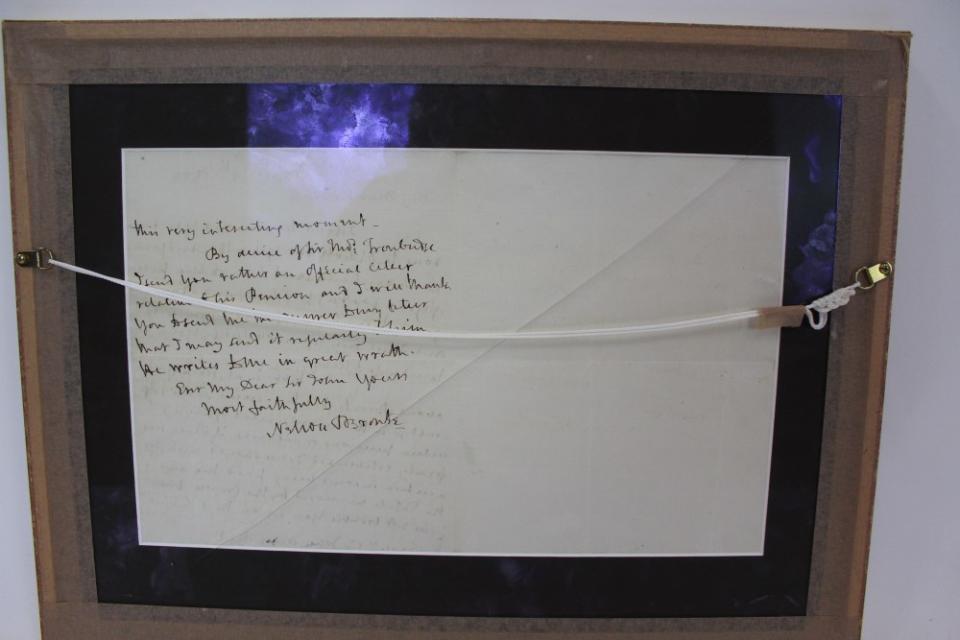 this very interesting moment_
By advice of Sir Thos. Troubridge
I send You rather an Official letter
relative to his Pension and I will thank
You to send me in answer to my letter
that I may send it regularly to him
He writes to me in great wrath.
Ever My Dear Sir John Yours
Most faithfully
Nelson & Bronte